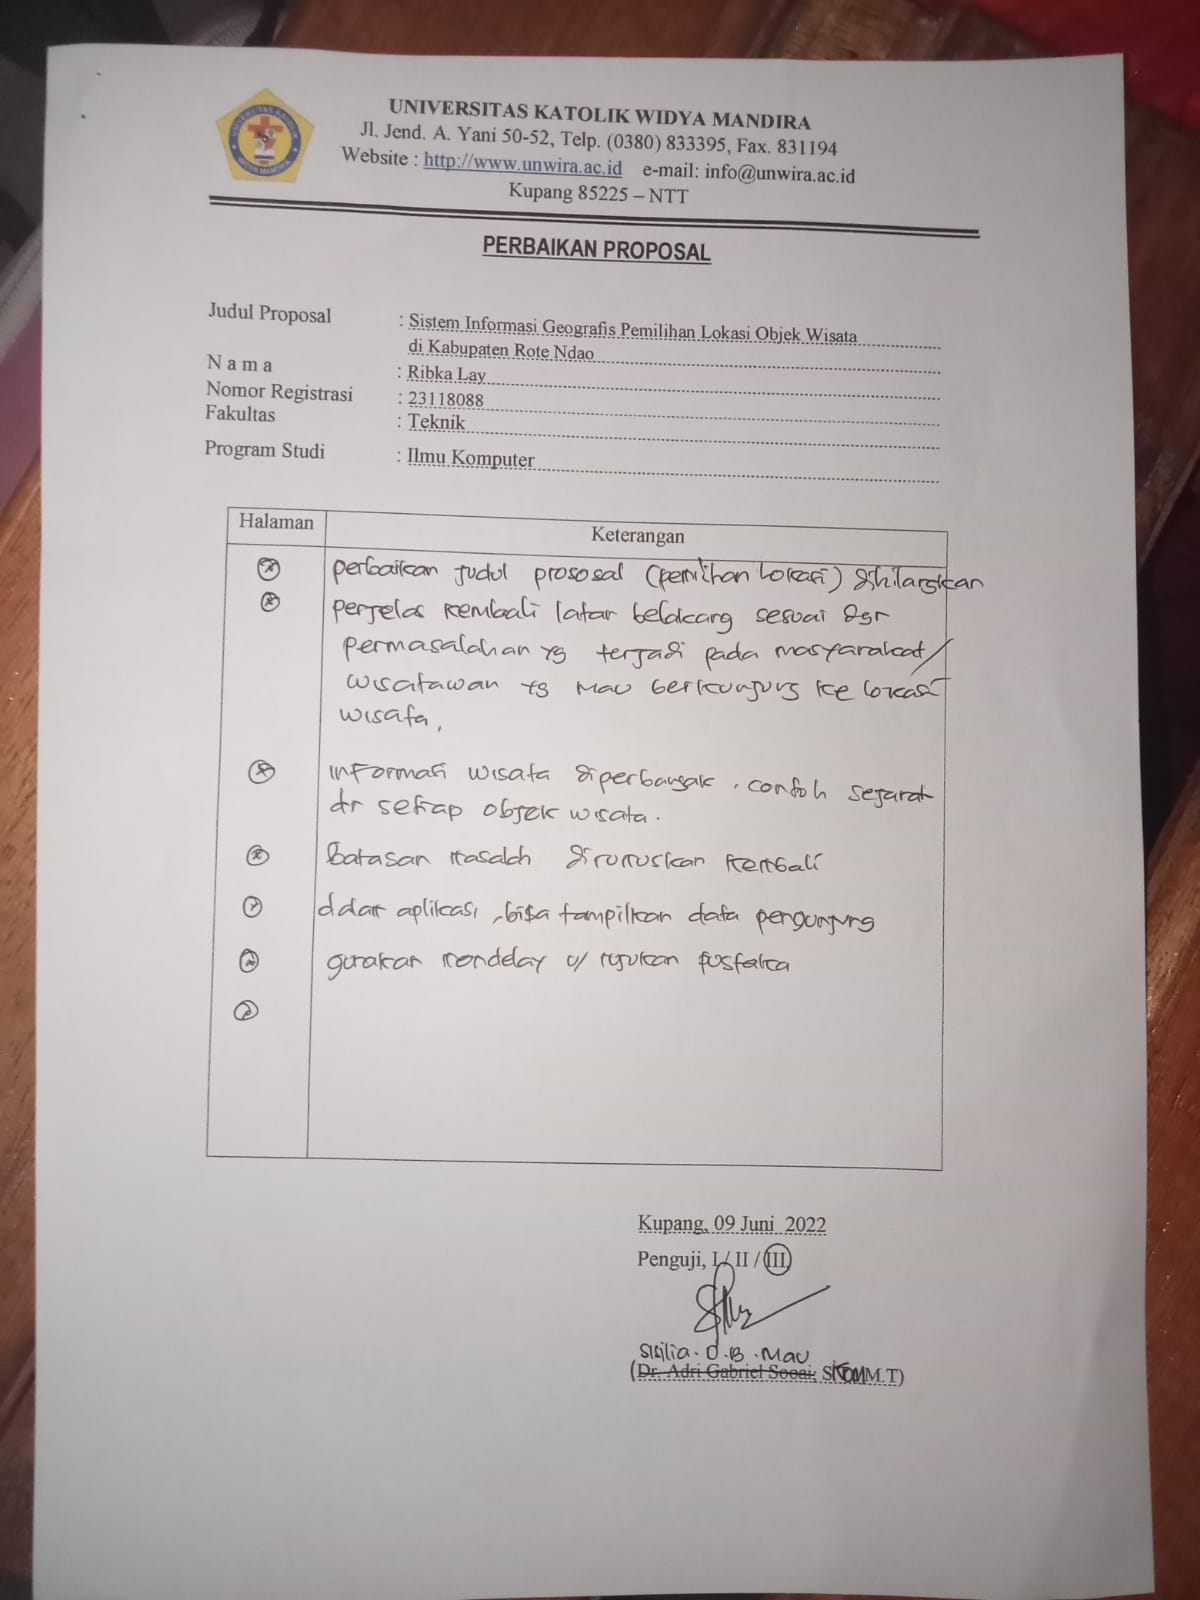 UNIVERSITAS KATOLIK WIDYA MANDIRA
Jl. Jend. A. Yani 50-52, Telp. (0380) 833395, Fax. 831194
Website : http://www.unwira.ac.id e-mail: info@unwira.ac.id
Kupang 85225 – NTT
PERBAIKAN PROPOSAL
Judul Proposal : Sistem Informasi Geografis Pemilihan Lokasi Objek Wisata
di Kabupaten Rote Ndao
N a m a : Ribka Lay
Nomor Registrasi : 23118088
Fakultas : Teknik
Program Studi : Ilmu Komputer
Halaman Keterangan
perbaikan judul proposal (pemilihan lokasi) dihilangkan
perjelas kembali latar belakang sesuai dgn
permasalahan yg terjadi pada masyarakat/
wisatawan yg mau berkunjung ke lokasi
wisata,
informasi wisata diperbanyak, contoh sejarah
dr setiap objek wisata.
Batasan masalah dirumuskan kembali
dalam aplikasi, bisa tampilkan data pengunjung
gunakan mendeley u/ rujukan pustaka
Kupang, 09 Juni 2022
Penguji, I / II / III
Sisilia. D.B. Mau
(Dr. Adri Gabriel Sooai, S.KOM M.T)